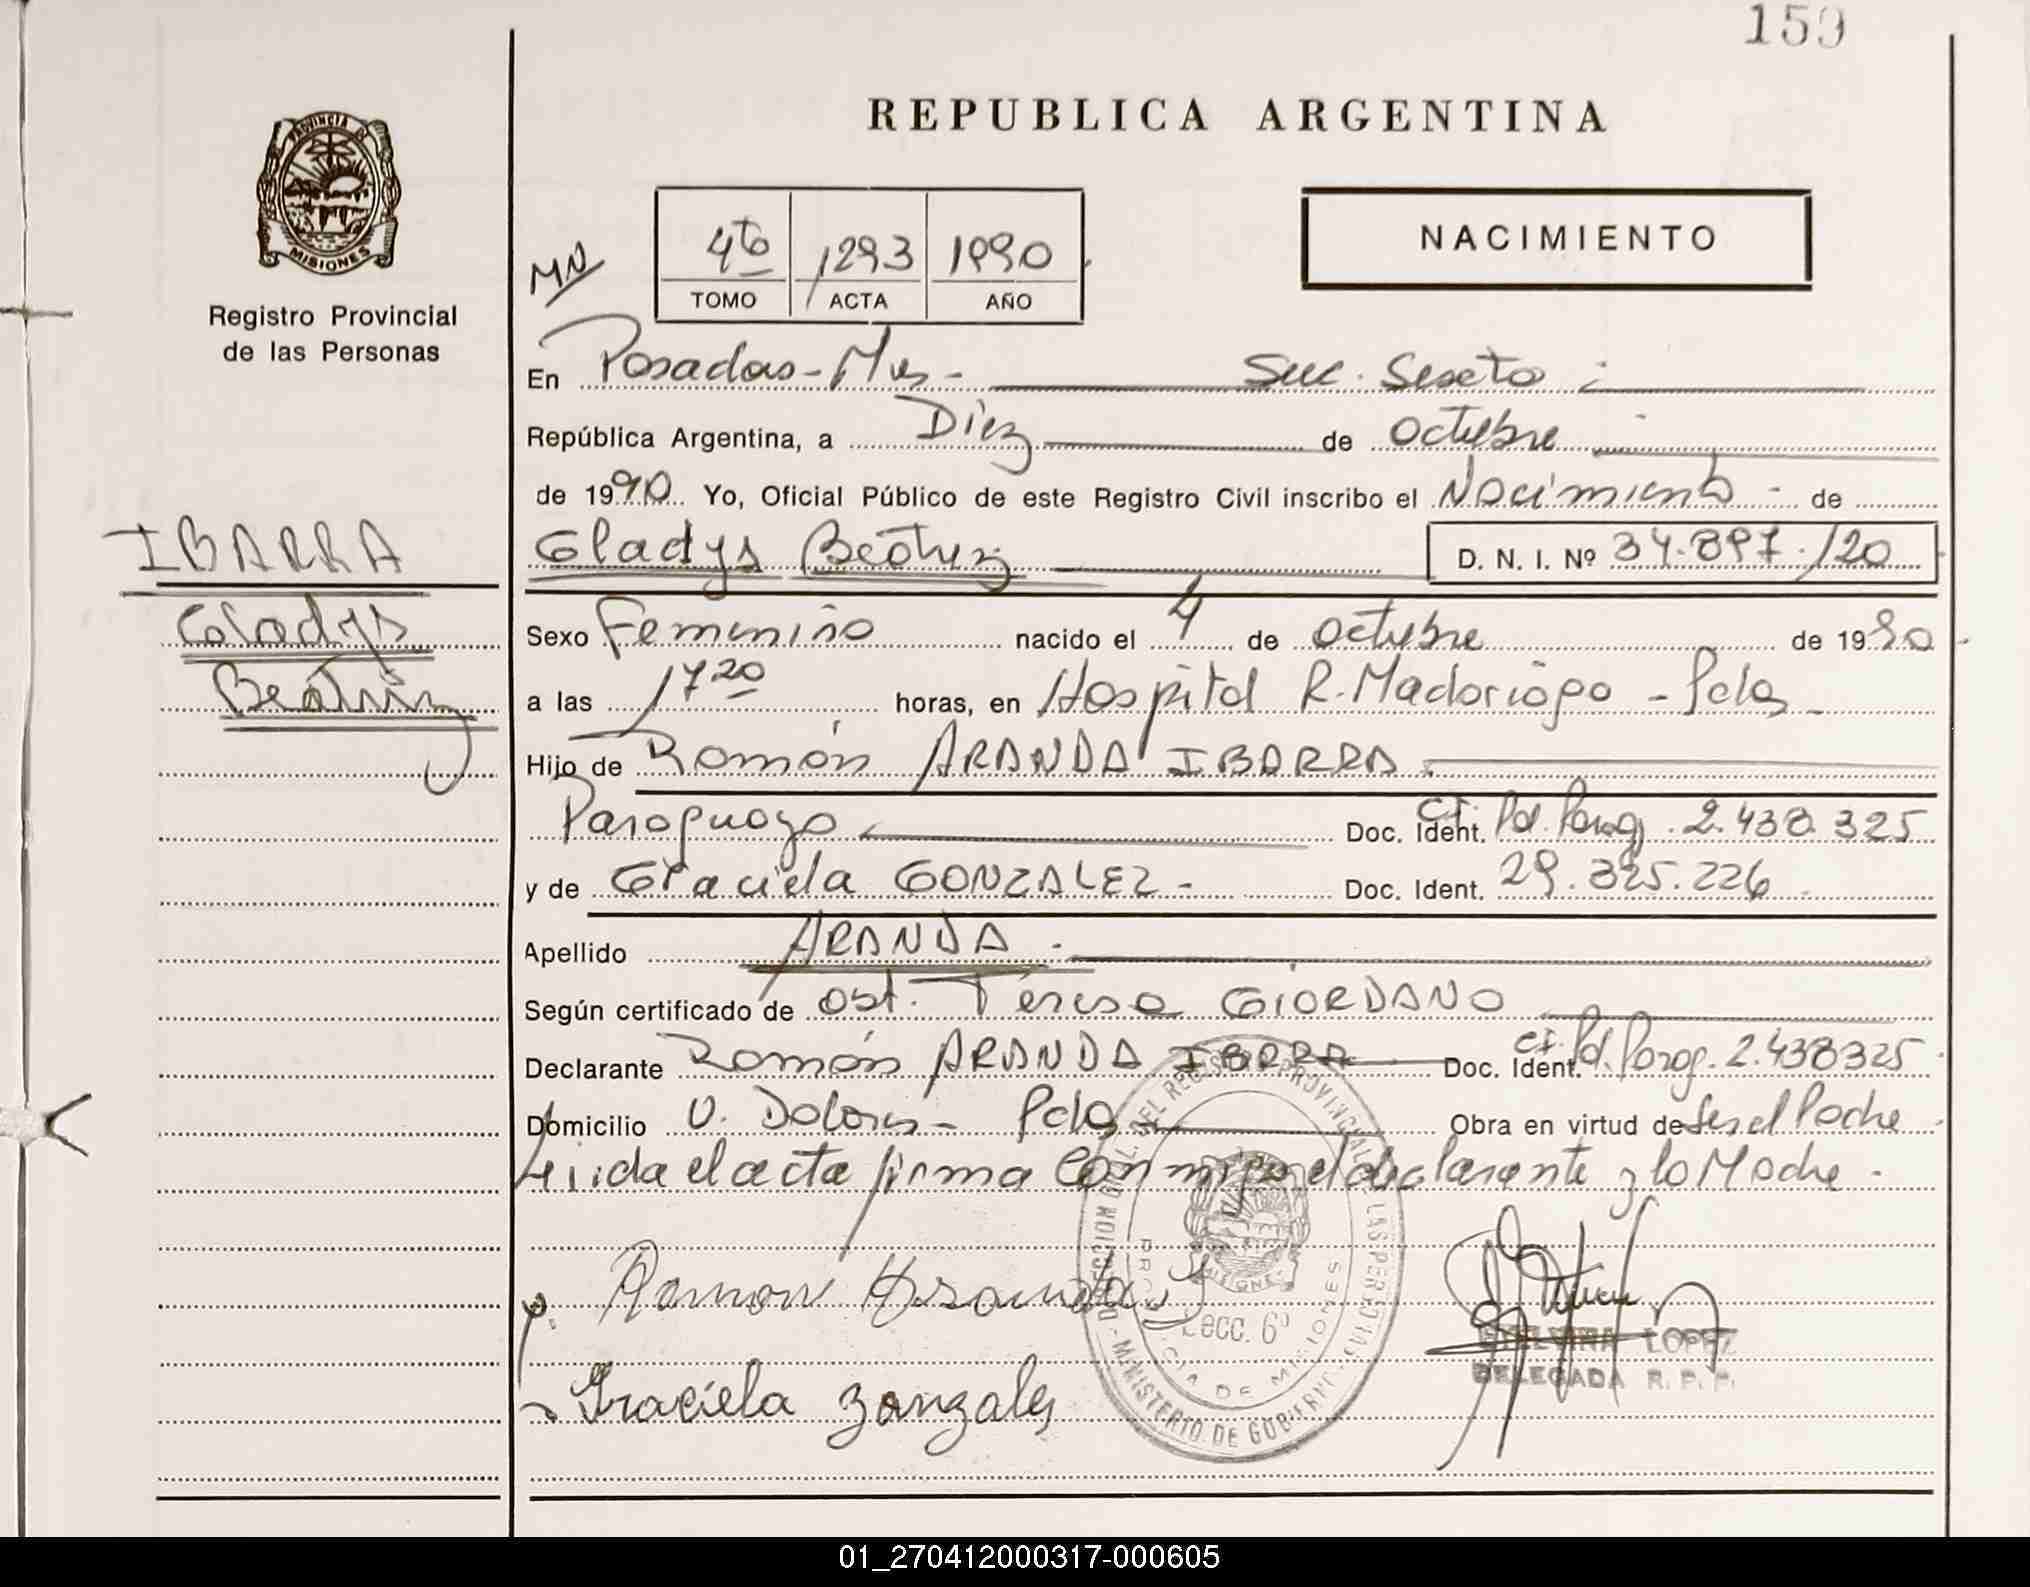 159
REPUBLICA ARGENTINA
PROVINCIA DE
MISIONES
Registro Provincial
de las Personas
NACIMIENTO
4to 1293 1990
TOMO ACTA AÑO
En Posadas - Mnes - Suc. Sexto
República Argentina, a Diez de Octubre
de 1990 Yo, Oficial Público de este Registro Civil inscribo el Nacimiento - de
IBARRA
Gladys Beatriz D. N. I. Nº 34.897./20
Gladys
Beatriz
Sexo Femenino nacido el 4 de Octubre de 1990
a las 17 20 horas, en Hospital R. Madariaga - Pdas
Hijo de Ramón ARANDA IBARRA
Paraguayo Doc. Ident. CI. Pol. Parag. 2.438.325
y de Graciela GONZALEZ - Doc. Ident. 29.325.226
Apellido ARANDA
Según certificado de Obst. Teresa GIORDANO
Declarante Ramón ARANDA IBARRA Doc. Ident. CI. Pol. Parag. 2.438325
Domicilio V. Dolores - Pdas Obra en virtud de Ser el Padre
Leida el acta firma Conmigo el declarante y la Madre
Ramon Aranda
Graciela Gonzales
Secc. 6º
LOPEZ
DELEGADA R. P. P.
01_270412000317-000605